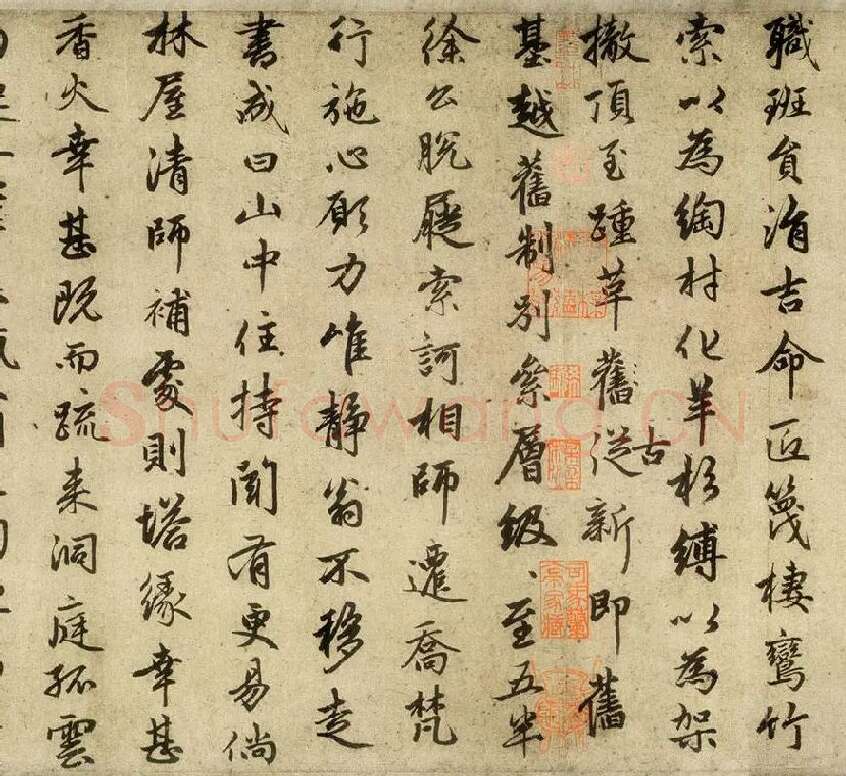 職班負渻吉命匠篾棲鸞竹
索以為綯村化羊杉縛以為架
撤頂至踵革舊從古新即舊
基越舊制別祭層級、至五半
徐公脫屣索訶相師遷喬梵
行施心願力唯靜翁不移走
書成曰山中住持聞有更易倘
林屋清師補處則塔緣幸甚
香火幸甚既而疏來洞庭孤雲
Shufawang.CN